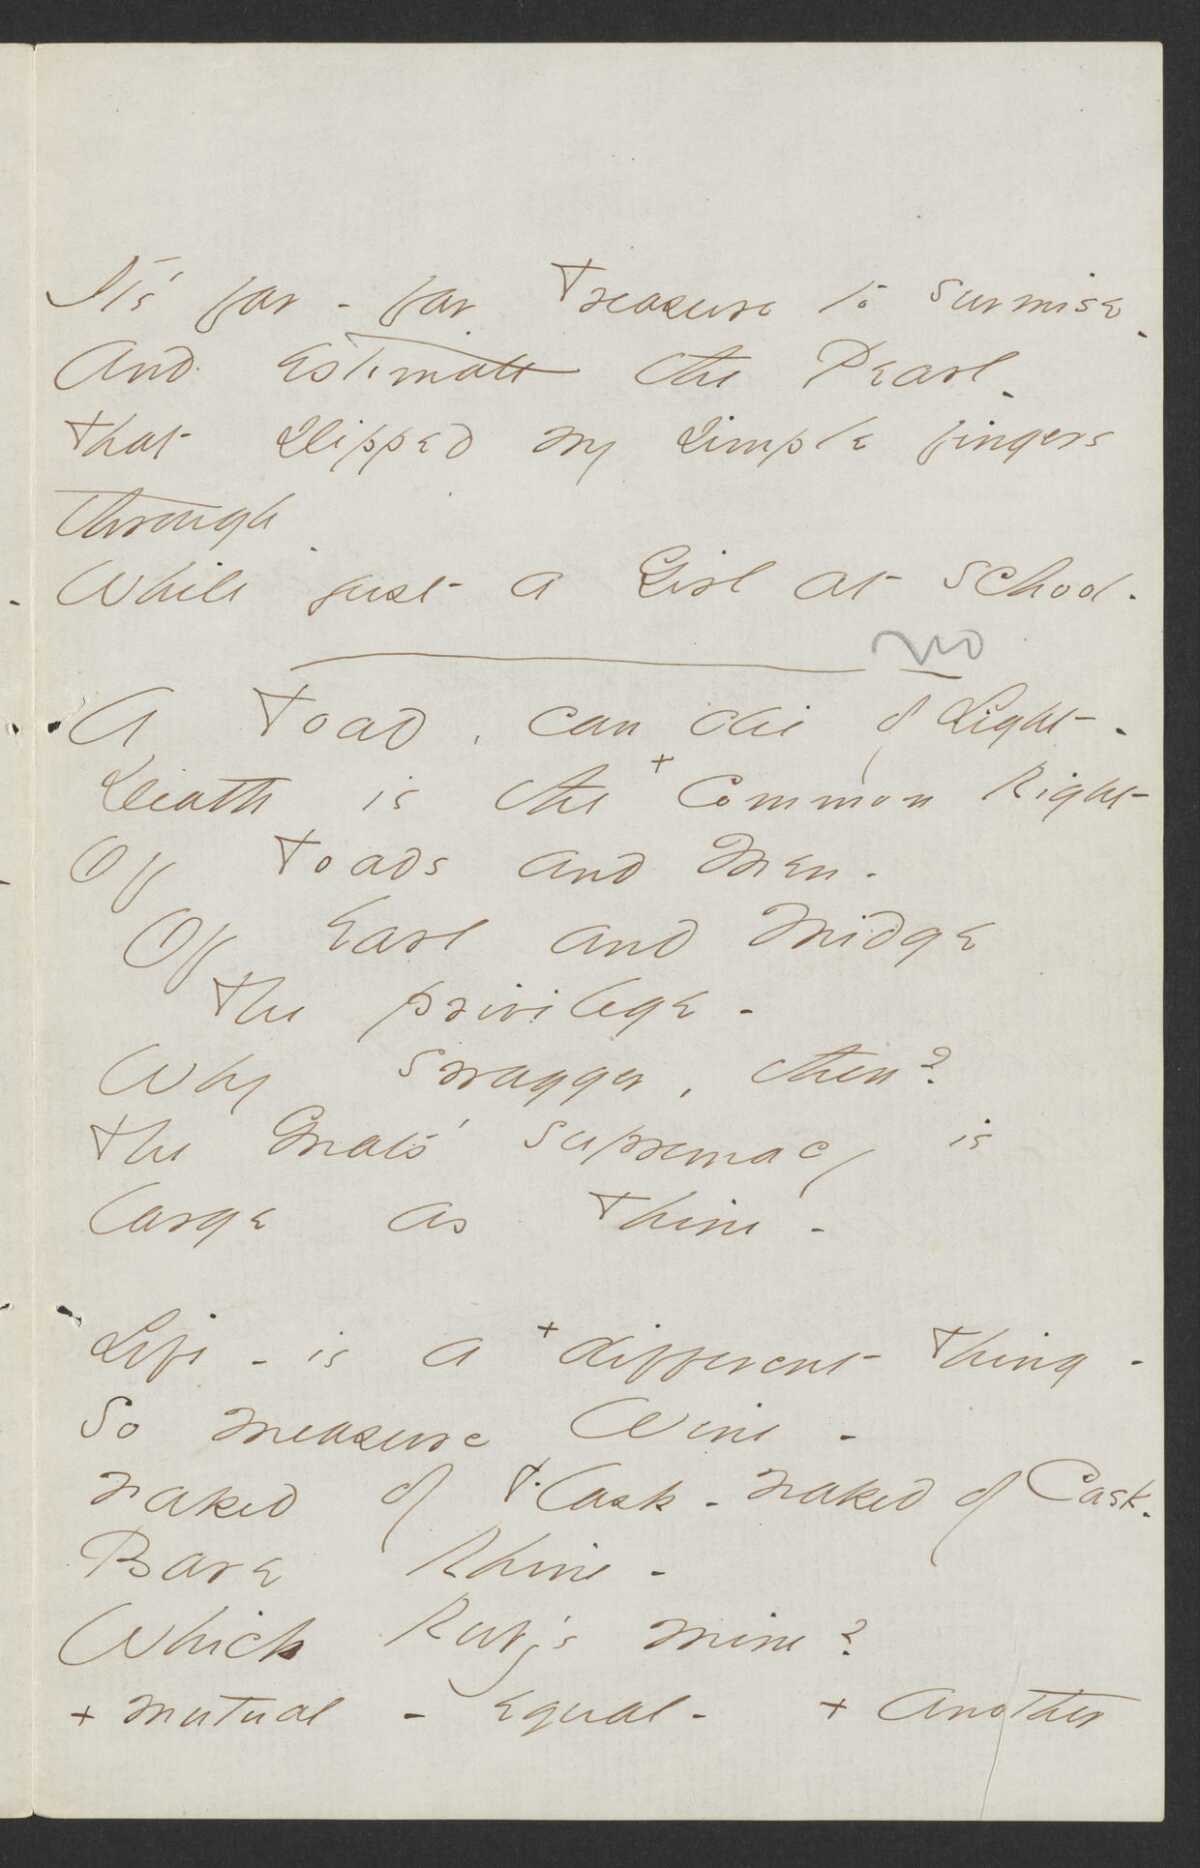 It's far - far Treasure to surmise -
And estimate the Pearl -
That slipped my simple fingers
through -
While just a Girl at School.
no
A Toad, can die of Light -
Death is the + Common Right
Of Toads and Men -
Of Earl and Midge
The privilege -
Why swagger, then?
The Gnat's supremacy is
large as Thine -
Life - is a + different Thing -
So measure Wine -
Naked of Flask - Naked of Cask -
Bare Rhine -
Which Ruby's mine?
+ mutual - equal - + Another